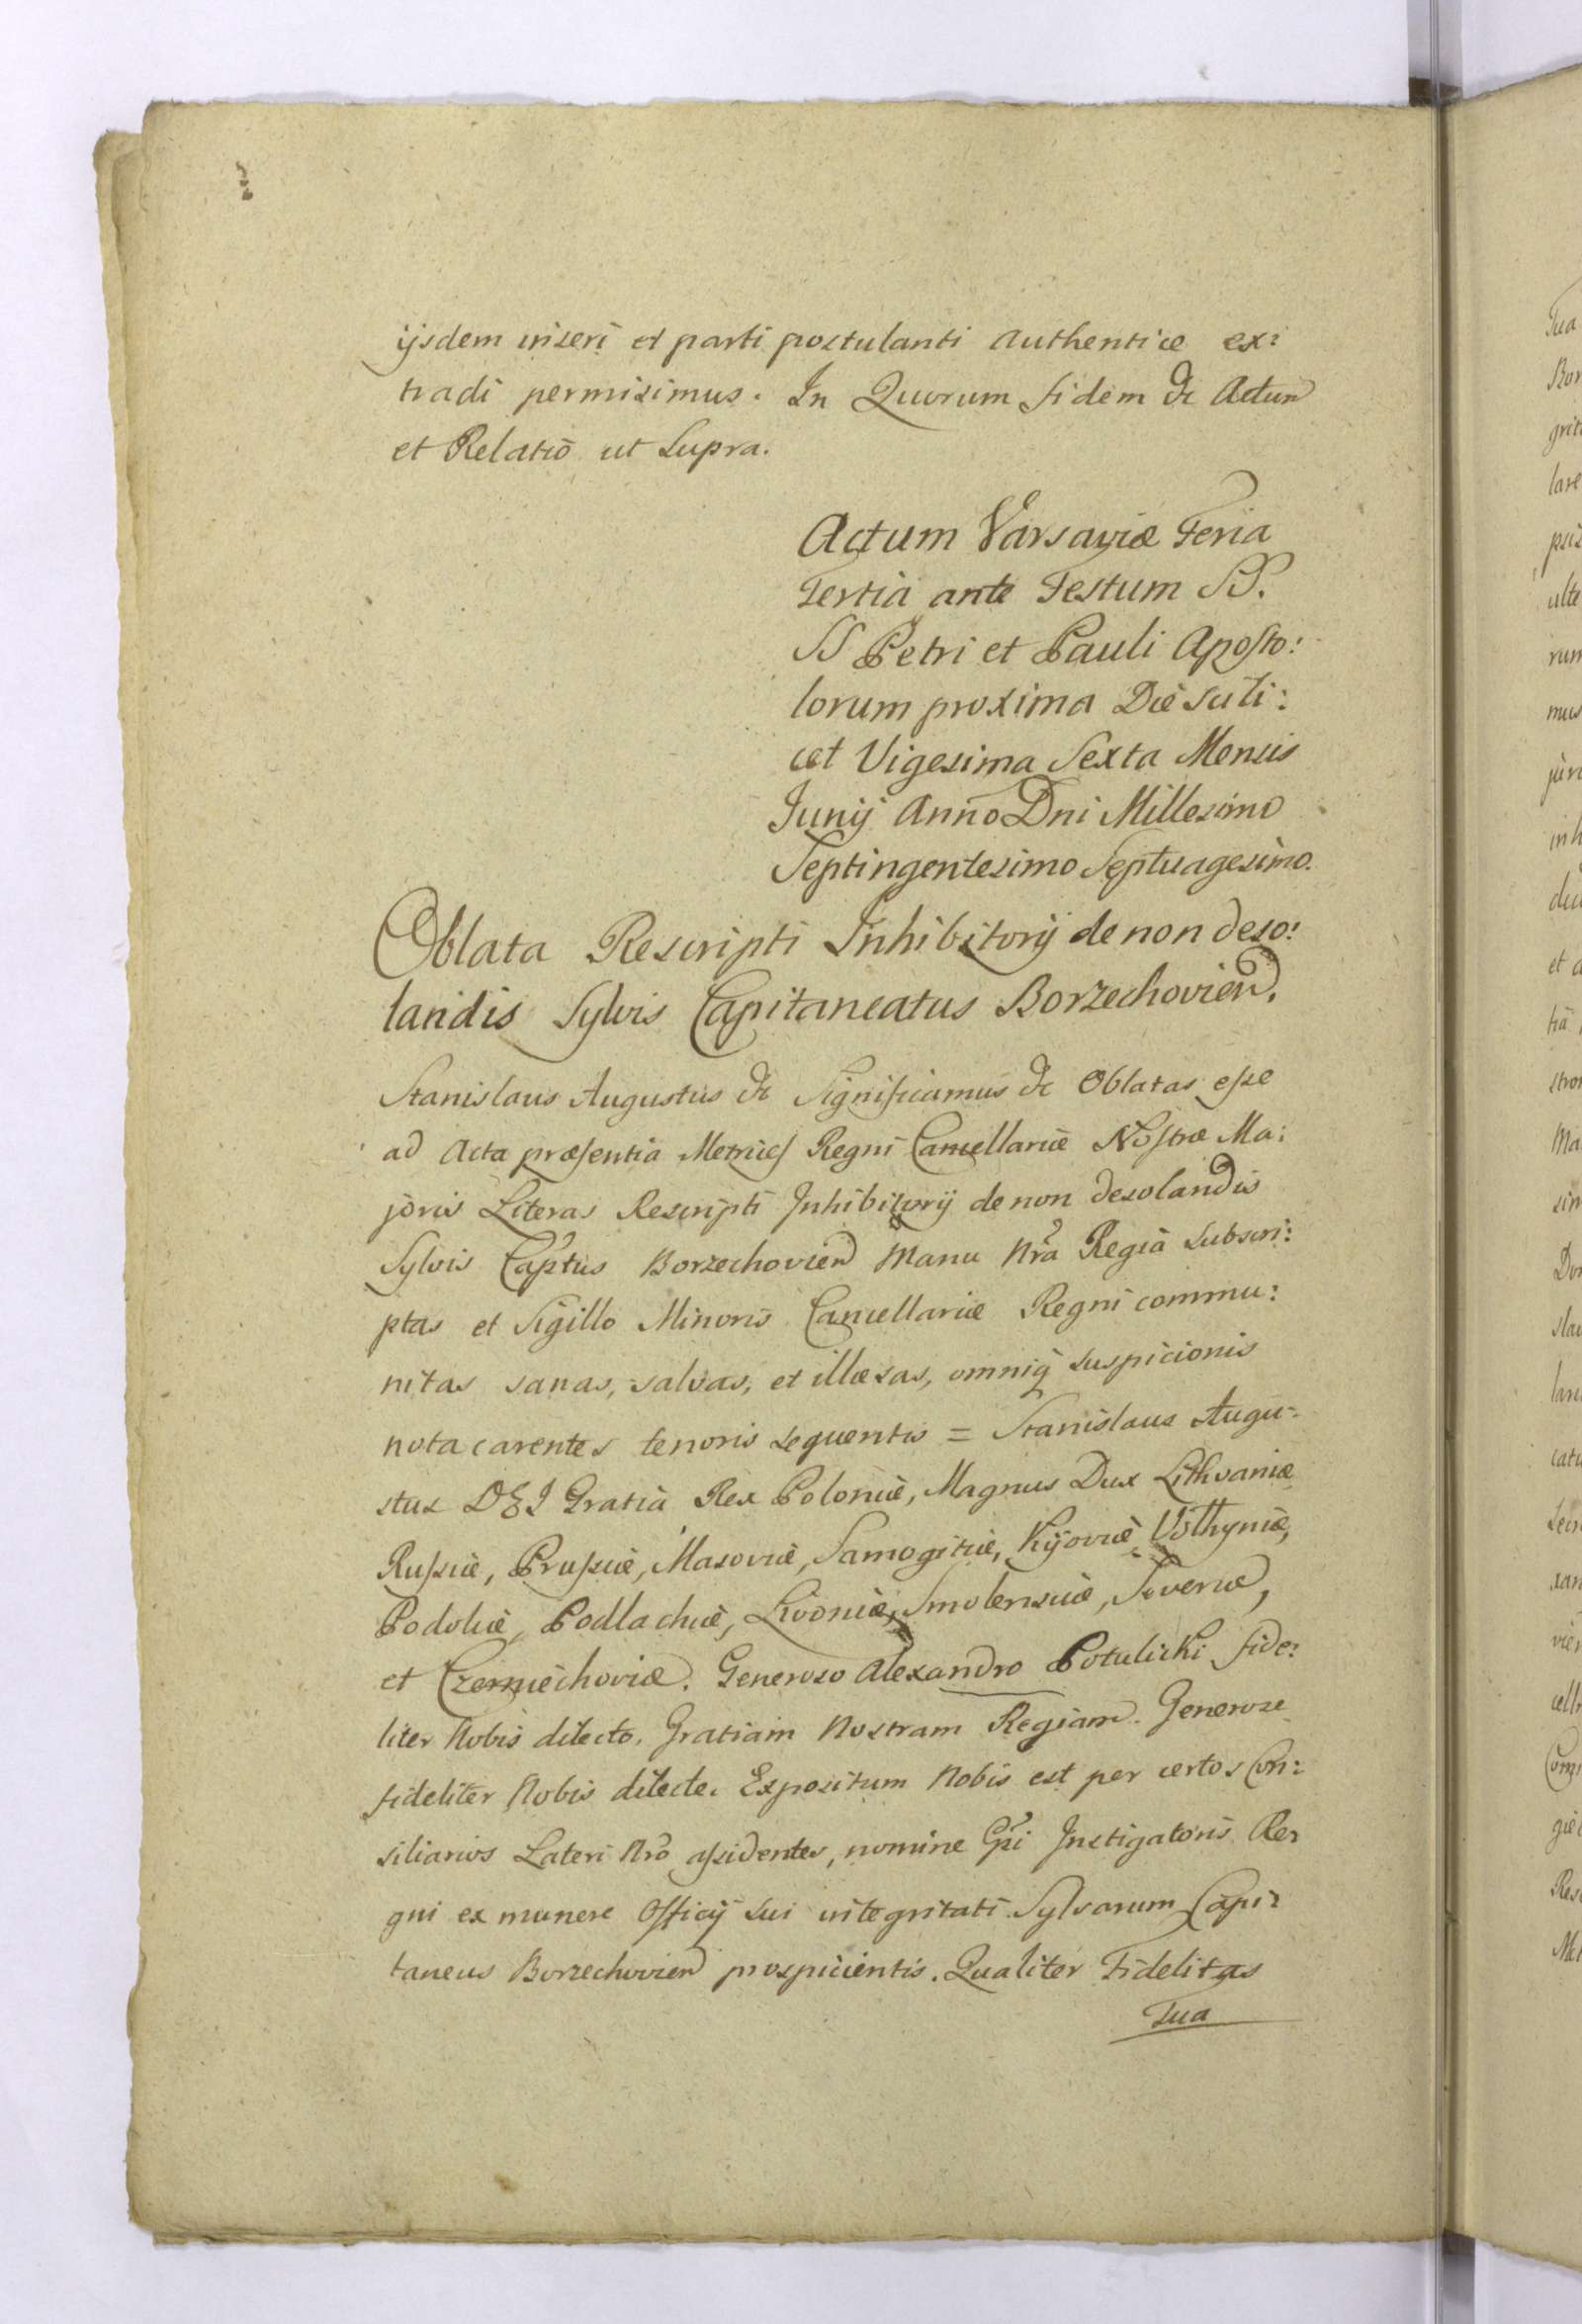 ijsdem inseri et parti postulanti authenticè ex:
tradi permisimus. In Quorum fidem &c Actum
et Relatio ut Supra.
Actum Varsaviæ Feria
Tertia ante Festum SS.
SS Petri et Pauli Aposto:
lorum proxima Die scili:
cet Vigesima Sexta Mensis
Junij Anno Dni Millesimo
Septingentesimo Septuagesimo.
Oblata Rescripti Inhibitorij de non deso:
landis Sylvis Capitaneatus Borzechovien.
Stanislaus Augustus &c Significamus &c Oblatas esse
ad Acta præsentia Metrices Regni Cancellariæ Nostræ Ma:
joris Literas Rescripti Inhibitorij de non desolandis
Sylvis Captus Borzechovien Manu Nra Regia subscri:
ptas et Sigillo Minoris Cancellariæ Regni commu:
nitas sanas, salvas, et illæsas, omniq suspicionis
nota carentes tenoris sequentis = Stanislaus Augu:
stus DEI Gratia Rex Poloniæ, Magnus Dux Lithvaniæ
Russiæ, Prussiæ, Masoviæ, Samogitiæ, Kijoviæ, Volhyniæ,
Podoliæ, Podlachiæ, Livoniæ, Smolensciæ, Severiæ,
et Czerniechoviæ. Generoso Alexandro Potulicki fide:
liter Nobis dilecto. Gratiam Nostram Regiam. Generose
fideliter Nobis dilecte. Expositum Nobis est per certos Con:
siliarios Lateri Nro assidentes, nomine Gsi Instigatoris Re:
gni ex munere Officij sui integritati Sylvarum Capi:
taneus Borzechovien prospicientis. Qualiter Fidelitas
Tua